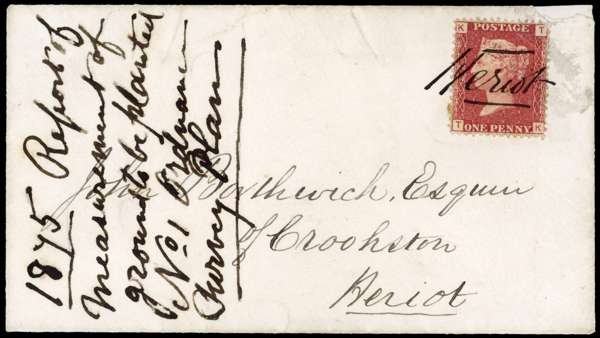 1875 Report of
Measurement of
grounds to be planted
No 1 Ordnance
Survey Plan
K T
POSTAGE
Heriot
T K
ONE PENNY
John Borthwick, Esquire
of Crookston
Heriot